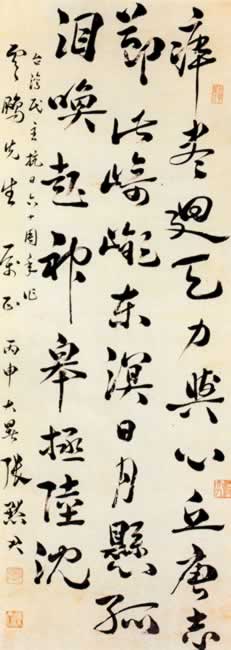 瘁盡迴天力與心丘唐志
節崎嶔東溟日月懸孤
淚喚起神皋極陸沈
台灣民主抗日六十周年作
雲鵬先生 屬正 丙申大暑 張默君